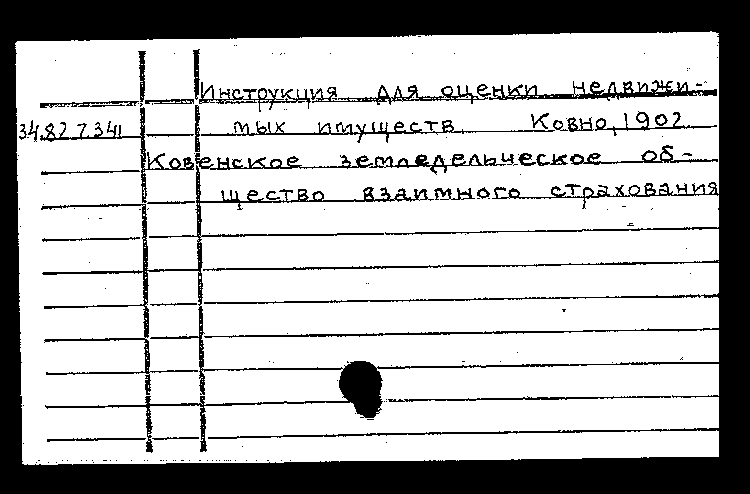 Инструкция для оценки недвижи-
34.82.7.341 мых имуществ. Ковно, 1902
Ковенское земледельческое об-
щество взаимного страхования